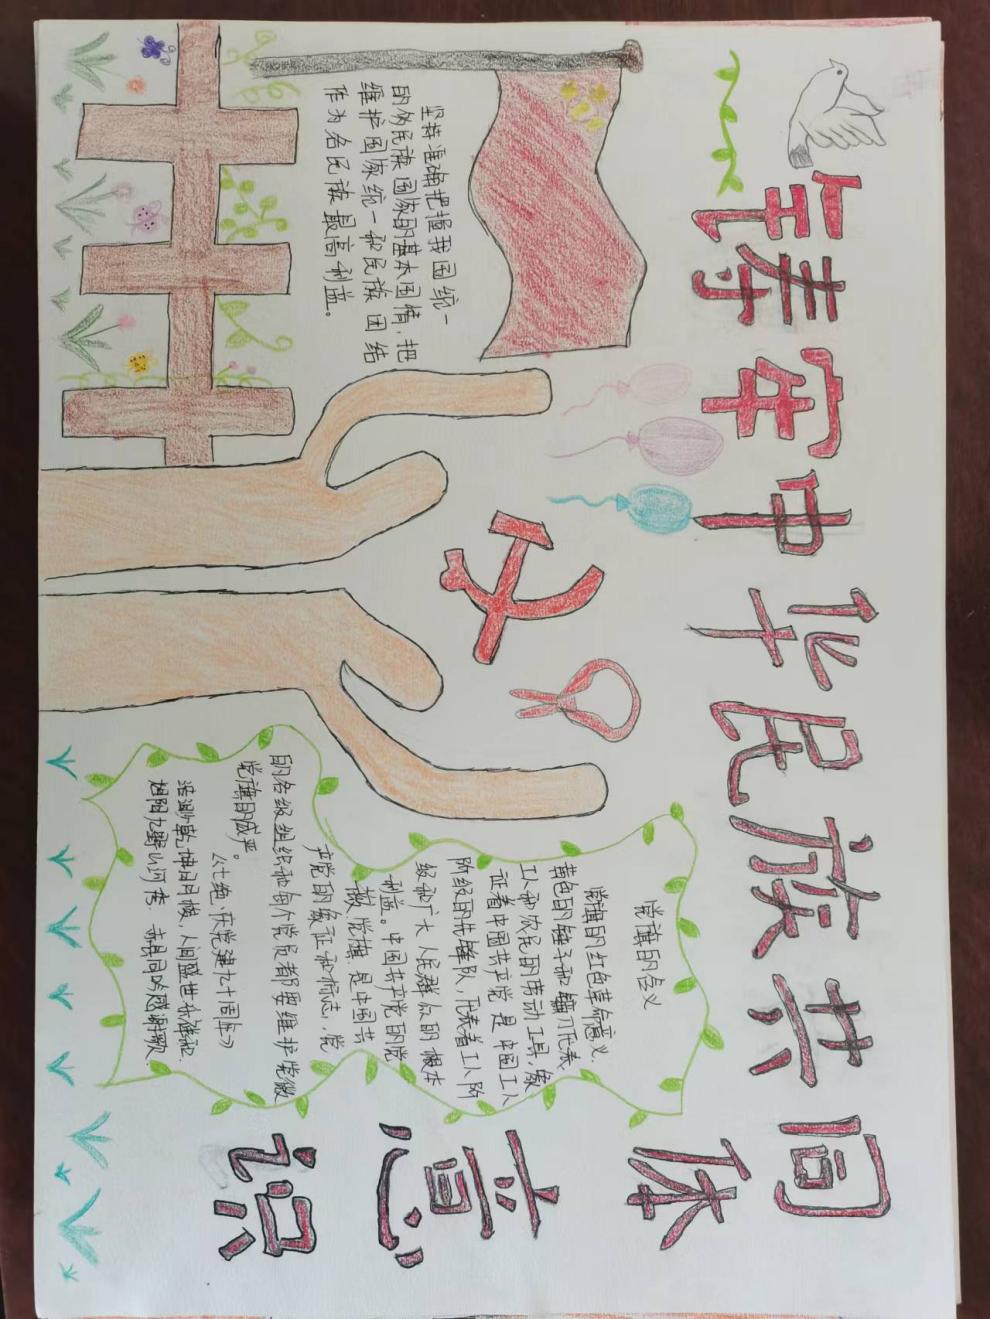 铸牢中华民族共同体意识
坚持准确把握我国统一
的多民族国家的基本国情，把
维护国家统一和民族团结
作为各民族最高利益。
党旗的含义
党旗的红色革命意义，
黄色的锤子和镰刀代表
工人和农民的劳动工具，象
征着中国共产党是中国工人
阶级的先锋队，代表着工人阶
级和广大人民群众的根本
利益。中国共产党的党
徽党旗是中国共
产党的象征和标志，党
的各级组织和每个党员都要维护党徽
党旗的威严。
《七绝·庆党建九十周年》
浩渺乾坤日月梭，人间盛世布祥和.
旭阳九野山河秀，赤县同吟感谢歌.